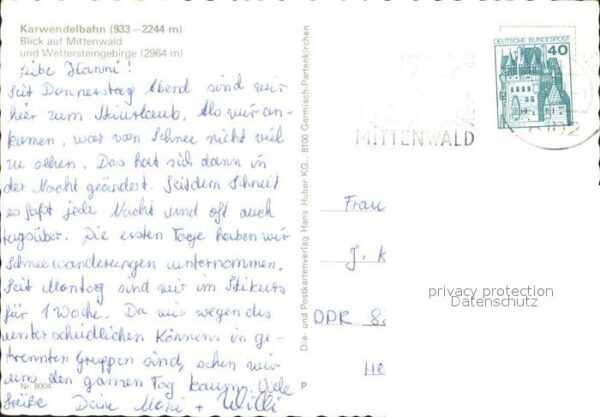 Karwendelbahn (933 – 2244 m)
Blick auf Mittenwald
und Wettersteingebirge (2964 m)
Liebe Hanni!
Seit Donnerstag Abend sind wir
hier zum Skiurlaub. Als wir an-
kamen, war von Schnee nicht viel
zu sehen. Das hat sich dann in
der Nacht geändert. Seitdem schneit
es fast jede Nacht und oft auch
tagsüber. Die ersten Tage haben wir
Schneewanderungen unternommen.
Seit Montag sind wir im Skikurs
für 1 Woche. Da wir wegen des
unterschiedlichen Könnens in ge-
trennten Gruppen sind, sehen wir
uns den ganzen Tag kaum. Viele
Grüße Deine Moni + Willi
Nr. 8004
P
Dia- und Postkartenverlag Hans Huber KG., 8100 Garmisch-Partenkirchen
MITTENWALD
DEUTSCHE BUNDESPOST
40
Frau
J. K
DDR 8
He
privacy protection
Datenschutz